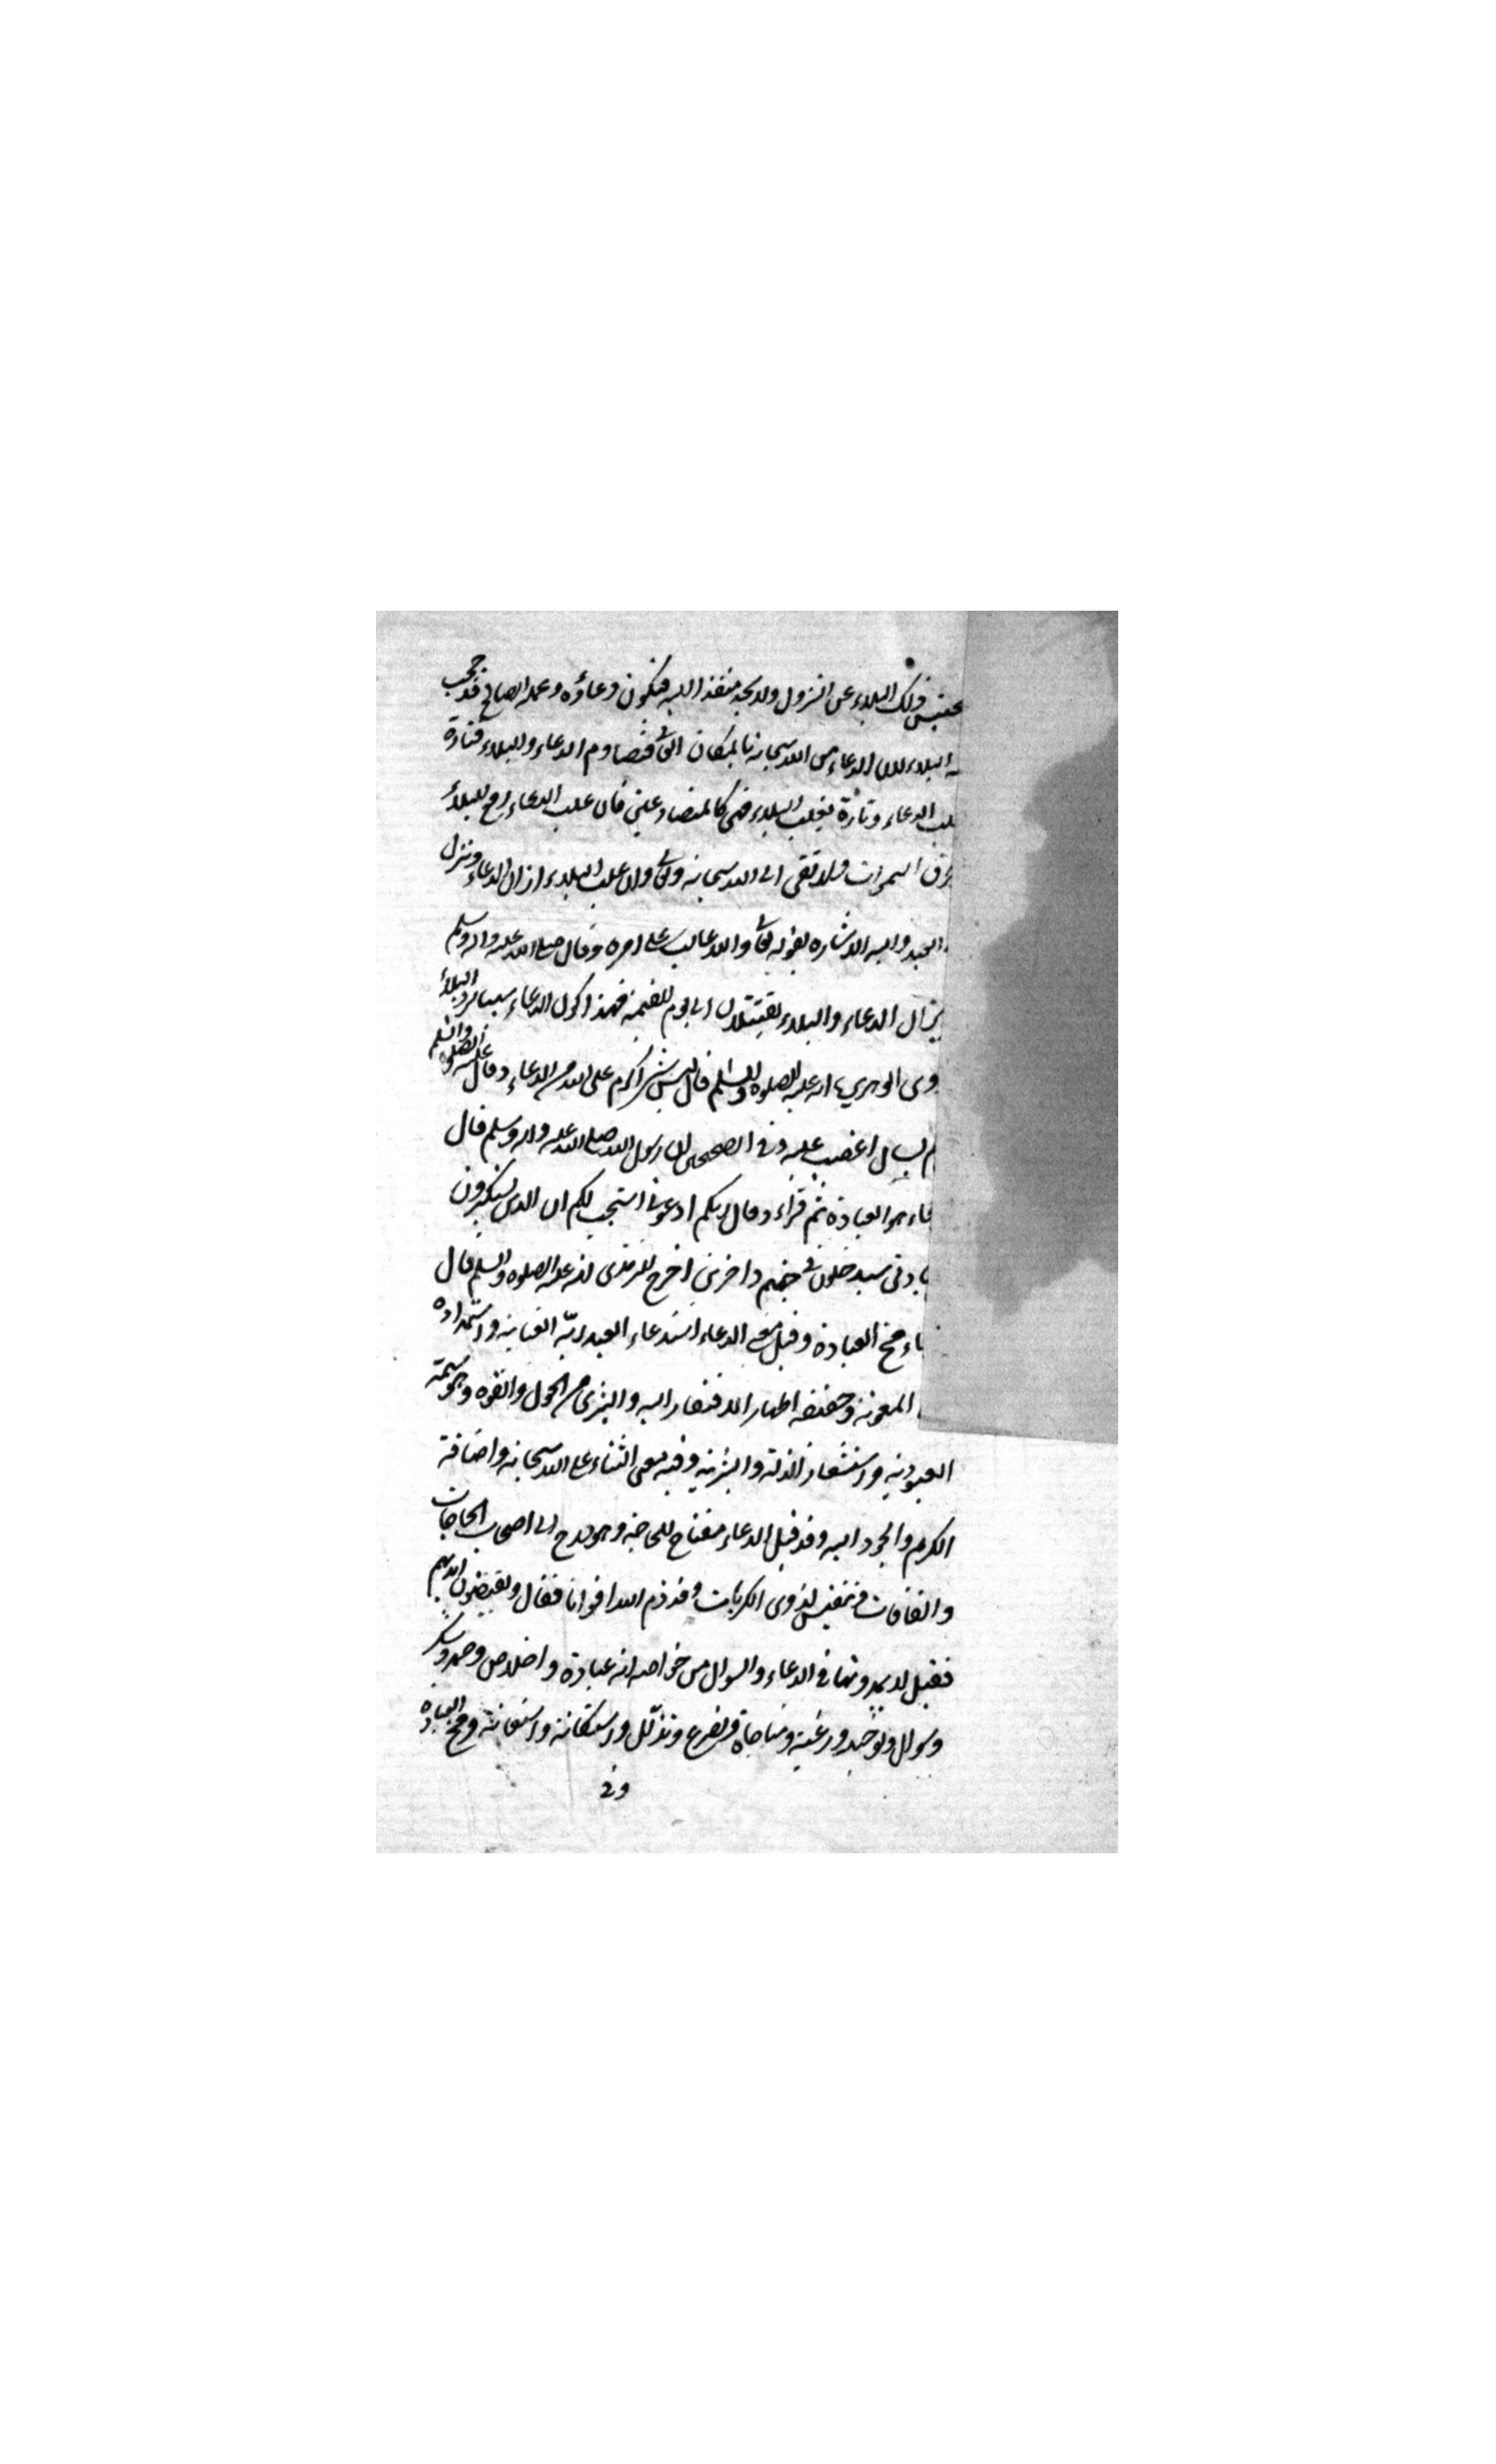 يحتبس ذلك البلاء عن النزول ولا يجد منفذا اليه فيكون دعاؤه وعمله الصالح قد حجب
البلاء لان الدعاء من الله سبحانه بالمكان العلى فتصادم الدعاء والبلاء فتارة
الدعاء وتارة يغلب البلاء فهى كالمتضادعين فان غلب الدعاء رفع البلاء
السموات ولا تقى الى الله سبحانه وتعالى وان غلب البلاء ازال الدعاء ونزل
العبد واليه الاشاره بقوله تعالى والله غالب على امره وقال صلى الله عليه واله وسلم
يزال الدعاء والبلاء يقتتلان الى يوم القيمة فهذا كون الدعاء سببا لرد البلاء
انه عليه الصلوه والسلم قال ليس شى اكرم على الله من الدعاء وقال عليه الصلوه والسلم
لم يسال اغضب عليه وفى الصحيحين ان رسول الله صلى الله عليه واله وسلم قال
هو العبادة ثم قراء وقال ربكم ادعونى استجب لكم ان الذين يستكبرون
سيدخلون جهنم داخرين اخرج الترمذى انه عليه الصلوه والسلم قال
مخ العبادة وقيل معنى الدعاء استدعاء العبد ربه العناية واستمداده
المعونة وحقيقته اظهار الافتقار اليه والتبرى من الحول والقوه وهو سمة
العبودية واستشعار الذلة والبشرية وفيه معنى الثناء على الله سبحانه واضافة
الكرم والجود اليه وقد قيل الدعاء مفتاح الحاجة وهو مدرج الى اصحاب الحاجات
والفاقات وتنفيس لذوى الكربات وقد ذم الله اقواما فقال ويقبضون ايديهم
فقيل لا يمدونها فى الدعاء والسوال من خواصه انه عبادة واخلاص وحمد وشكر
وسوال وتوحيد ورغبة ومناجاة وتضرع وتذلل واستكانة واستغاثة ومخ العبادة
وفى